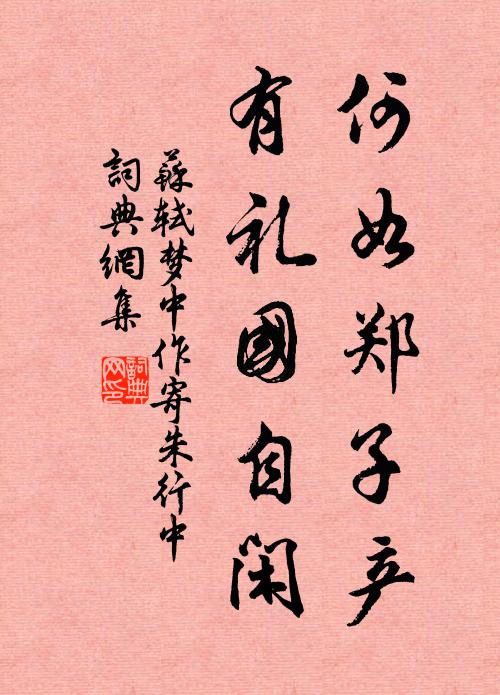 何如郑子产
有礼國自闲
蘇轼梦中作寄朱行中
詞典網集
詞典網印